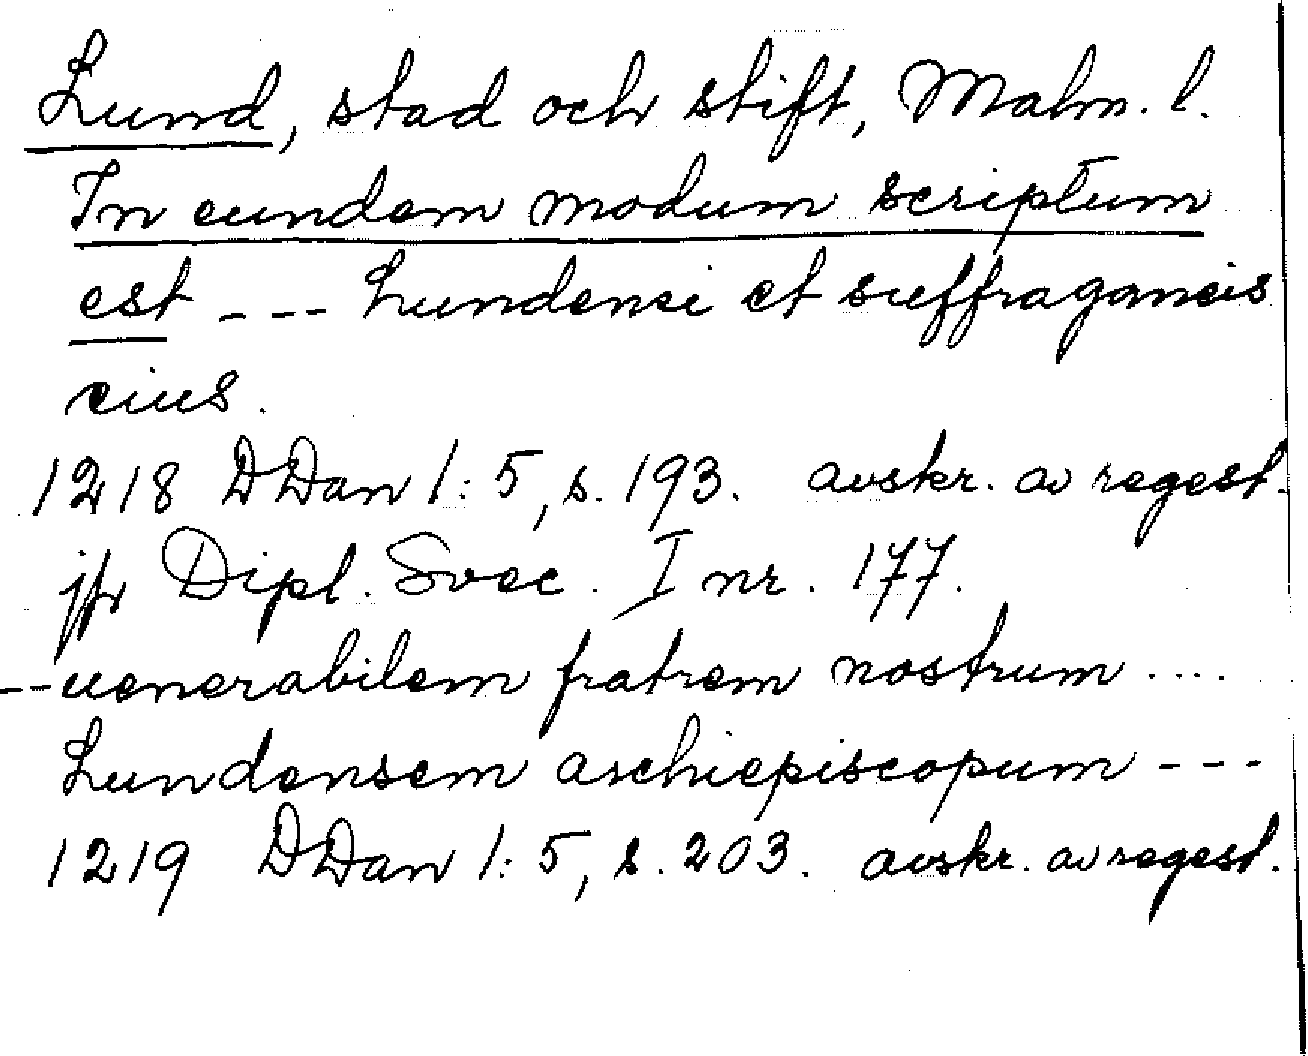 Lund, stad och stift, Malm. l.
In eundem modum scriptum
est --- Lundensi et suffraganeis
eius.
1218 DDan 1:5, s. 193. avskr. av regest.
jfr Dipl. Svec. I nr. 177.
--uenerabilem fratrem nostrum ....
Lundensem archiepiscopum ---
1219 DDan 1:5, s. 203. avskr. av regest.